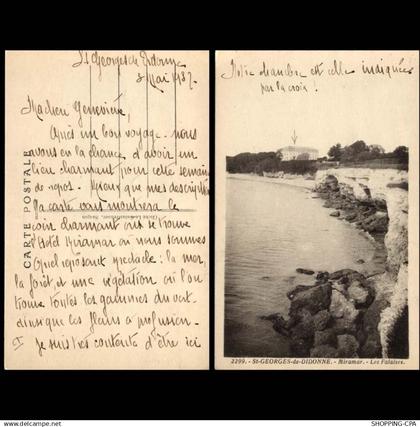 St Georges de Didonne
8 Mai 1937.
Ma chère Geneviève,
Après un bon voyage nous
avons eu la chance d'avoir un
lieu charmant pour cette semaine
de repos. Mieux que mes descriptions
la carte vous montrera le
coin charmant où se trouve
l'Hôtel Miramar où nous sommes
Quel reposant spectacle : la mer,
la forêt et une végétation où l'on
trouve toutes les gammes du vert
ainsi que les fleurs à profusion.
I Je suis très contente d'être ici
CARTE POSTALE
Notre chambre est celle indiquée
par la croix !
2299. - St-GEORGES-de-DIDONNE. - Miramar. - Les Falaises.
Image sous copyright SHOPPING-CPA
Image sous copyright SHOPPING-CPA